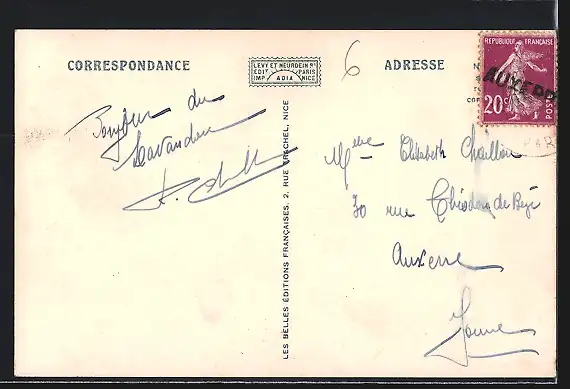 CORRESPONDANCE
LEVY ET NEURDEIN Rs
EDIT PARIS
IMP ADIA NICE
6
ADRESSE
REPUBLIQUE FRANÇAISE
20c
POSTES
AUXERRE
PAR
Bonjour du
Lavandou
LES BELLES ÉDITIONS FRANÇAISES. 2, RUE TRACHEL, NICE
Melle Elisabeth Chaillou
30 rue Théodore de Bèze
Auxerre
Yonne